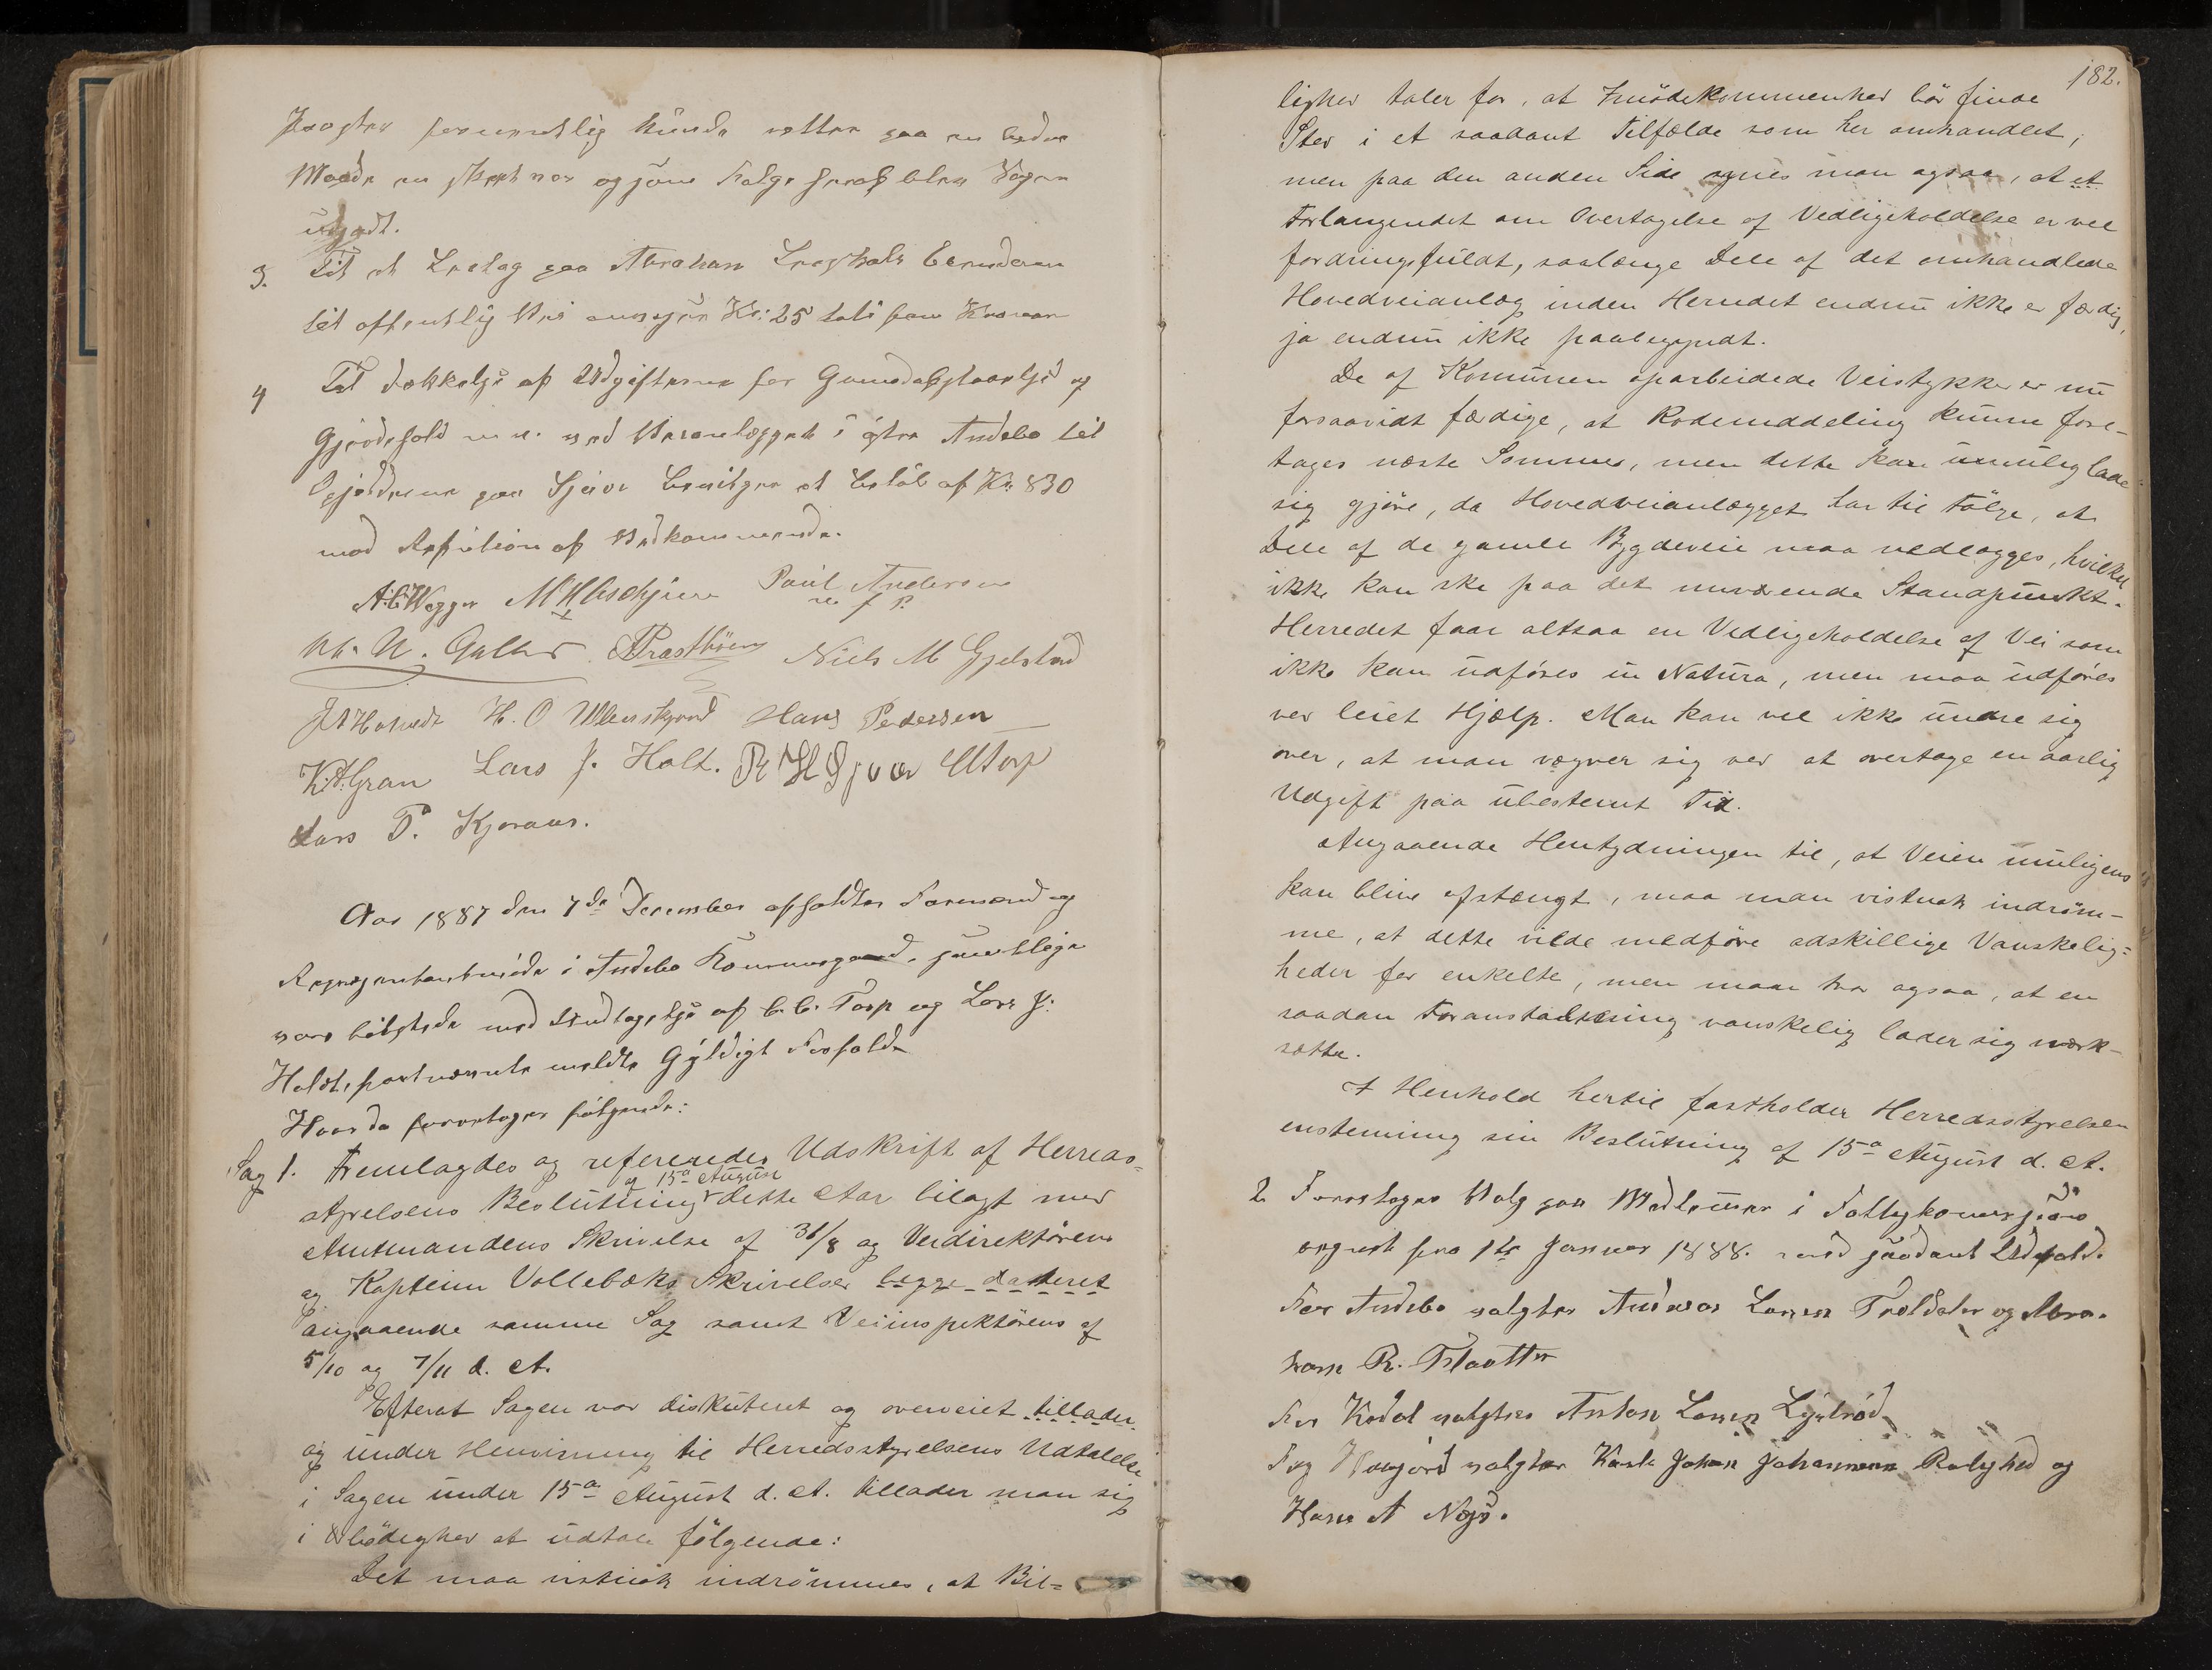 kunde rettes paa en bedre
Maade
udgadt.
3. Til et paa Abraham
til offentlig Vei Kr: 25 Kroner
4 Til Dækkelse af Udgifterne for Grundafstaaelse og
Gjerdehold m. v. ved Veianlægget i østre Andebo til
Opsidderne paa Sjeivi bevilges et Beløb af Kr 830
mod Refusion af Vedkommende.
Paul Anderson
Niels M Gjelstad
H. O Ulenskjær Hans Pedersen
K. A. Gran Lars J. Holt.
Lars P.
Aar 1887 den 7de December afholdtes Formænd og
Repræsentantmøde i Andebo Kommunegaard. samtlige
vare tilstede med Undtagelse af C. C. Torp og Lars J.
Holdt, fortnævnte meldte Gyldigt Forfald
Hvor da foretages følgende:
Sag 1. Fremlagdes og refereredes Udskrift af Herreds-
af 15de August
styrelsens Beslutning dette Aar bilagt med
Amtmandens Skrivelse af 31/8 og Veidirektørens
og Kaptein Vollebæks Skrivelser begge dateret
angaaende samme Sag samt Veiinspektørens af
5/10 og 7/11 d. A.
Efterat Sagen var diskuteret og overveiet tillader
og under Henvisning til Herredsstyrelsens Udtalelse
i Sagen under 15de August d. A. tillader man sig
i Ærbødighed at udtale følgende:
Det maa vistnok indrømmes, at Bil=
182.
lighed taler for, at Imødekommenhed bør finde
Sted i et saadant Tilfælde som her omhandlet,
men paa den anden Side synes man ogsaa, at et
Forlangendet om Overtagelse af Vedligeholdelse er vel
fordringsfuldt, saalænge Dele af det omhandlede
Hovedveianlæg inden Herredet endnu ikke er færdig,
ja endnu ikke paabegyndt.
De af Komunen oparbeidede Veistykker er nu
forsaavidt færdige, at Rodeinddeling kunne fore-
tages næste Sommer, men dette kan umulig lade
sig gjøre, da Hovedveianlægget har til Følge, at
Dele af de gamle Bygdeveie maa nedlægges, hvilket
ikke kan ske paa det nuværende Standpunkt.
Herredet faar altsaa en Vedligeholdelse af Vei som
ikke kan udføres in Natura, men maa udføres
ved leiet Hjælp. Man kan vel ikke undre sig
over, at man vægrer sig ved at overtage en aarlig
Udgift paa ubestemt Tid.
Angaaende Hentydningen til, at Veien muligens
kan blive afstængt, maa man vistnok indrøm-
me, at dette vilde medføre adskillige Vanskelig=
heder for enkelte, men man tror ogsaa, at en
saadan Foranstaltning vanskelig lader sig værk-
sætte.
I Henhold hertil fastholder Herredsstyrelsen
enstemmig sin Beslutning af 15de August d. A.
2 Foretoges Valg paa Medlemmer i Fattigkommisjon
regnet fra 1te Januar 1888. med saadant Udfald.
For Andebo valgtes Andreas Larsen Trolldalen og Abra-
ham R. Flaatten
For Kodal valgtes Anton Larsen
For Høijord valgtes Karl Johan Johannesen Rolighed og
Hans A